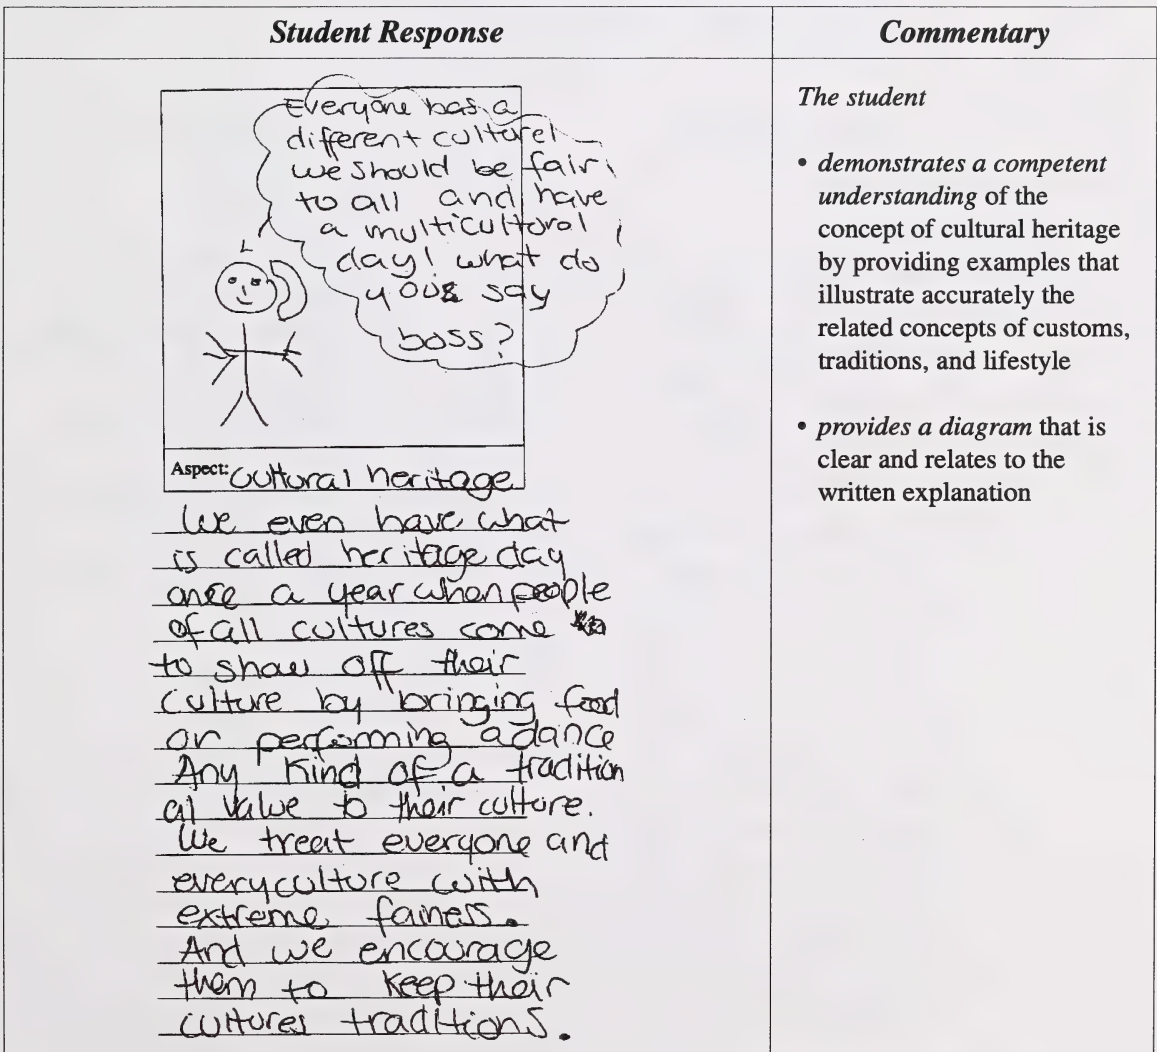 Student Response
Everyone has a
different culture!
we should be fair
to all and have
a multicultural
day! what do
you say
boss?
Aspect: Cultural heritage
We even have what
is called heritage day
once a year when people
of all cultures come
to show off their
culture by bringing food
or performing a dance
Any kind of a tradition
al value to their culture.
We treat everyone and
every culture with
extreme fairness.
And we encourage
them to keep their
cultures traditions.
Commentary
The student
• demonstrates a competent
understanding of the
concept of cultural heritage
by providing examples that
illustrate accurately the
related concepts of customs,
traditions, and lifestyle
• provides a diagram that is
clear and relates to the
written explanation